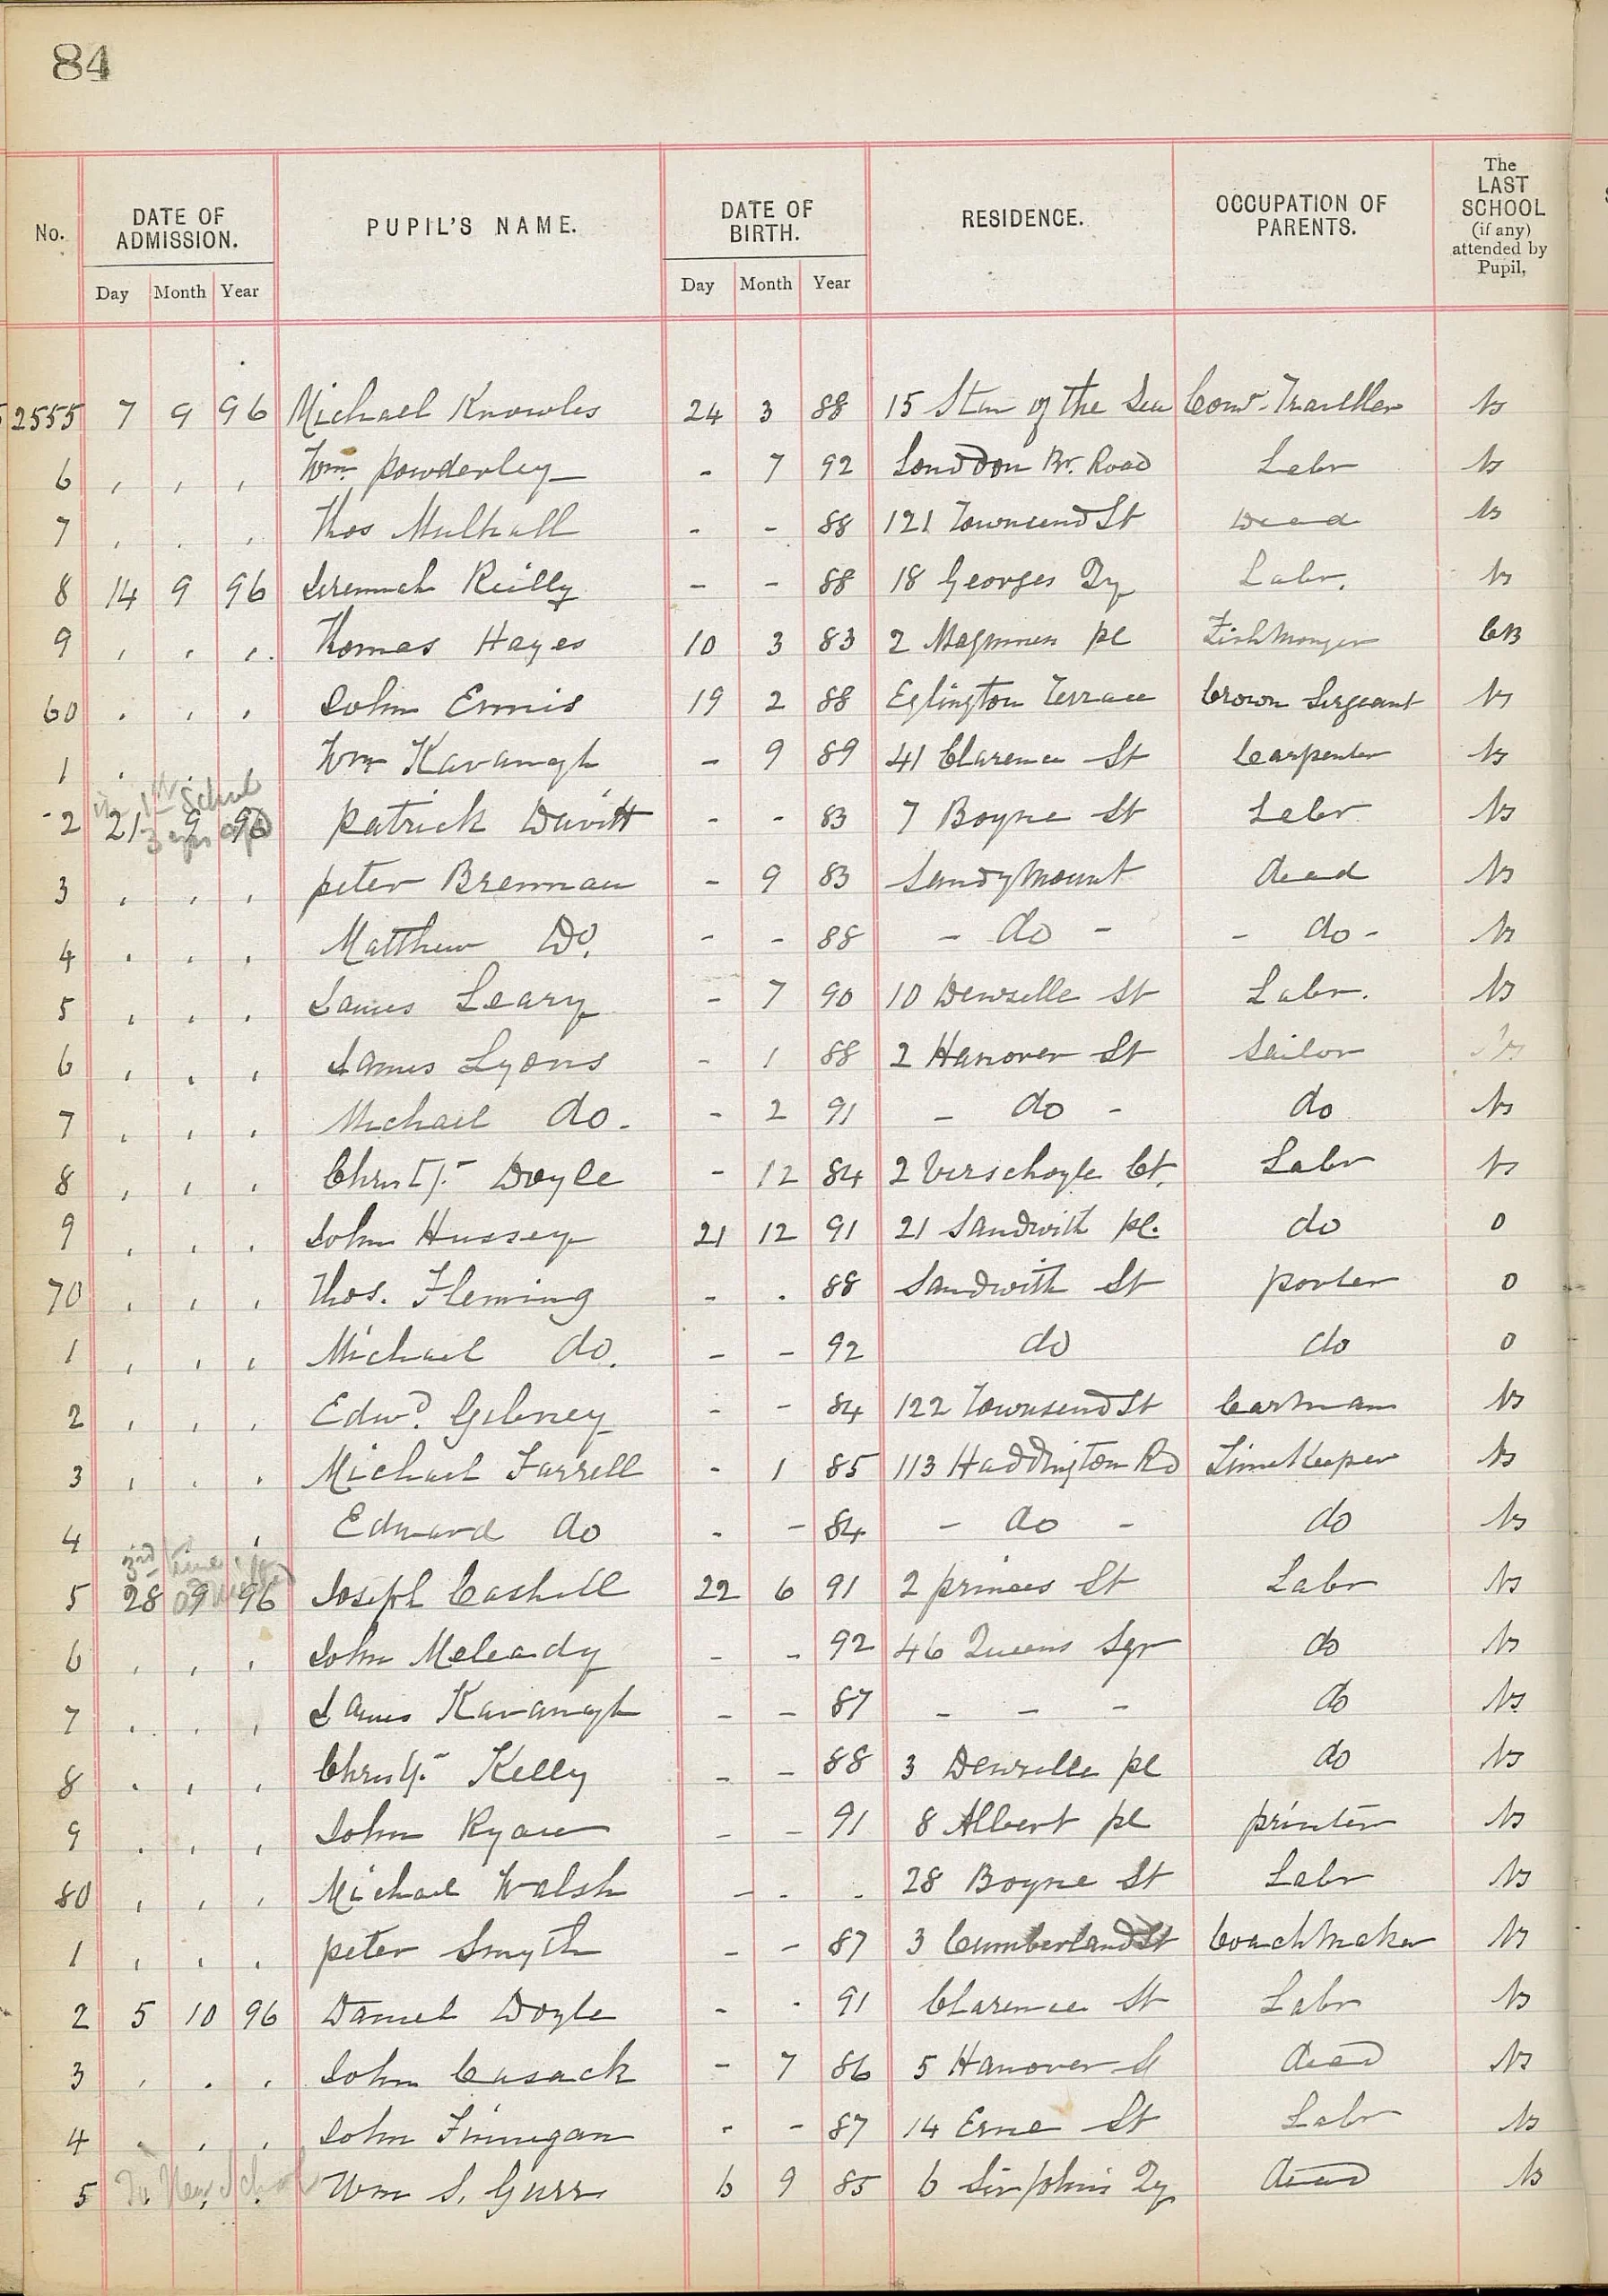 84
No. DATE OF ADMISSION. PUPIL'S NAME. DATE OF BIRTH. RESIDENCE. OCCUPATION OF PARENTS. The LAST SCHOOL (if any) attended by Pupil,
Day Month Year Day Month Year
52555 7 9 96 Michael Knowles 24 3 88 15 Star of the Sea Coml. Traveller Ns
6 , , , Wm. Powderley - 7 92 London Br. Road Labr Ns
7 , . , Thos Mulhall - - 88 121 Townsend St Dead Ns
8 14 9 96 Jeremiah Reilly - - 88 18 Georges Qy Labr. Ns
9 , , , . Thomas Hayes 10 3 83 2 Magennis pl Fishmonger CB
60 . , , John Ennis 19 2 88 Eglington Terrace Crown Sergeant Ns
1 . . Wm Kavanagh - 9 89 41 Clarence St Carpenter Ns
in 1st School
3 yrs ago
2 21 9 96 Patrick Davitt - - 83 7 Boyne St Labr Ns
3 , , , peter Brennan - 9 83 Sandymount dead Ns
4 . . , Matthew Do. - - 88 - do - - do - Ns
5 , , , James Leary - 7 90 10 Denzille St Labr. Ns
6 , . , James Lyons - 1 88 2 Hanover St Sailor Ns
7 , , , Michael do. - 2 91 - do - do Ns
8 , , , Christr. Doyle - 12 84 2 Verschoyle Ct. Labr Ns
9 , , , John Hussey 21 12 91 21 Sandwith pl. do 0
70 , , , Thos. Fleming - . 88 Sandwith St porter 0
1 , , , Michael do. - - 92 do do 0
2 , , , Edwd. Gibney - - 84 122 Townsend St Cartman Ns
3 , . . Michael Farrell - 1 85 113 Haddington Rd Timekeeper Ns
4 , Edward do - - 84 - do - do Ns
3rd time
admitted
5 28 9 96 Joseph Cashell 22 6 91 2 princes St Labr Ns
6 , , , John Meleady - - 92 46 Queens Sqr do Ns
7 . , , James Kavanagh - - 87 - - - do Ns
8 . , , Christr. Kelly - - 88 3 Denzille pl do Ns
9 . , , John Ryan - - 91 8 Albert pl printer Ns
80 , , , Michael Walsh - - . 28 Boyne St Labr Ns
1 , , , peter Smyth - - 87 3 Cumberland St Coachmaker Ns
2 5 10 96 Daniel Doyle - - 91 Clarence St Labr Ns
3 , . , John Cusack - 7 86 5 Hanover St dead Ns
4 . , , John Finnegan - - 87 14 Erne St Labr Ns
In New School
5 . , . Wm J. Gurr 6 9 85 6 Sir Johns Qy dead Ns